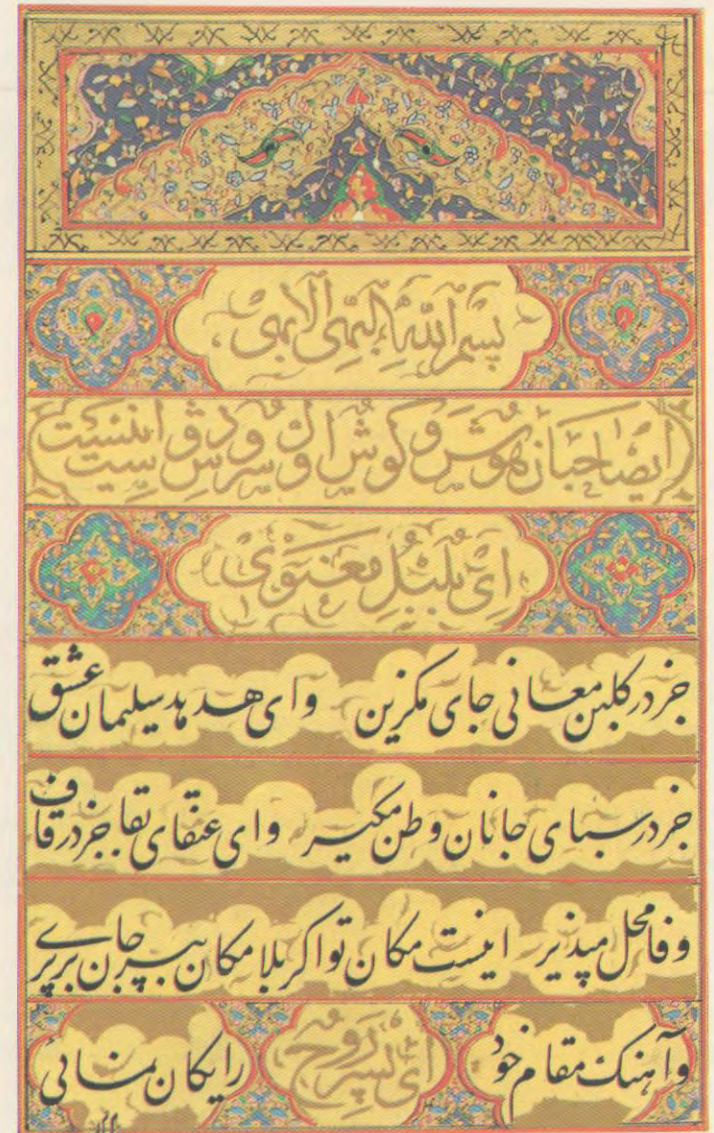 بسم الله البهی الابهی
ایصاحبان هوش و کوش اول سروش دوست اینست
ای بلبل معنوی
جز در کلبن معانی جای مکزین و ای هدهد سلیمان عشق
جز در سبای جانان وطن مکیر و ای عنقای بقا جز در قاف
وفا محل مپذیر اینست مکان تو اکر بلامکان بپر جان برپری
و آهنک مقام خود ای پسر روح رایکان نمائی